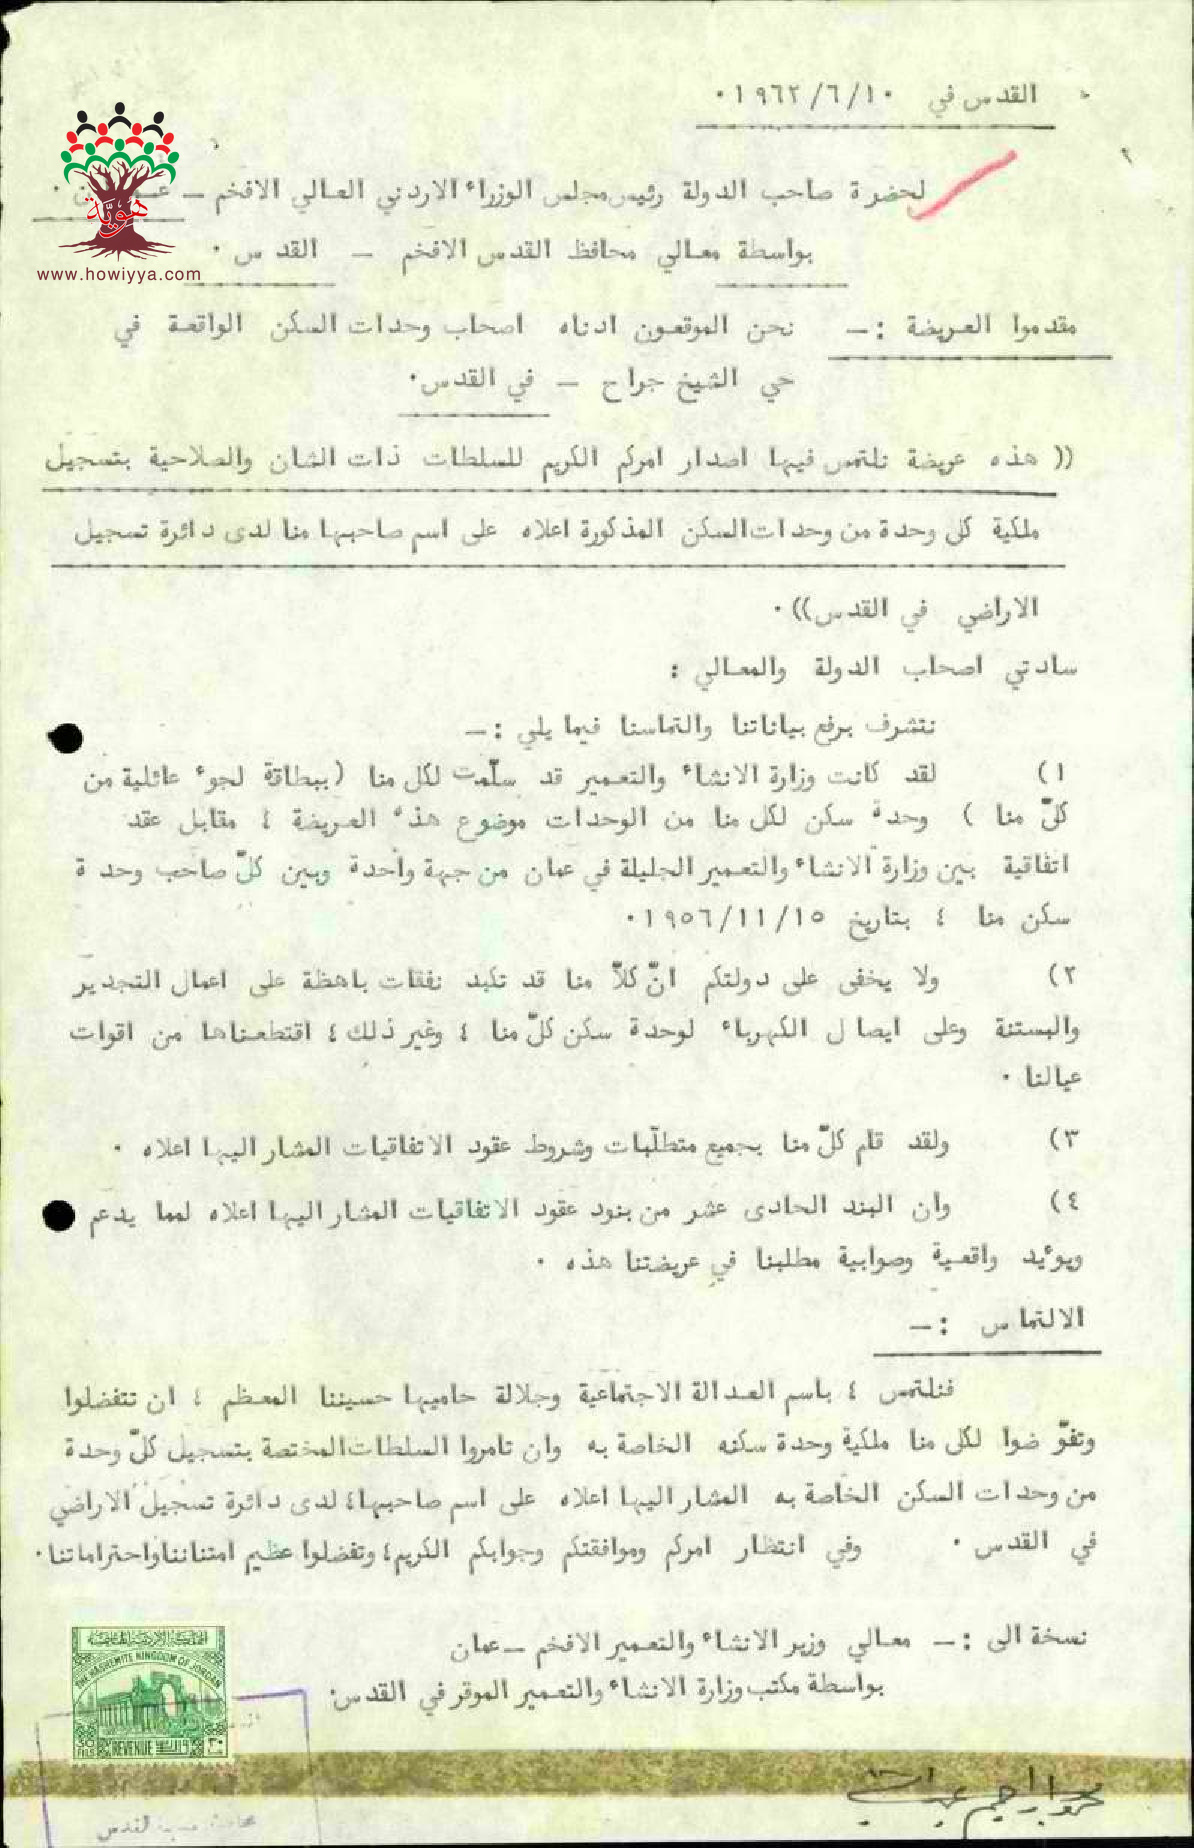 القدس في ١٩٦٢/٦/١٠.
لحضرة صاحب الدولة رئيس مجلس الوزراء الاردني العالي الافخم –
هوية
www.howiyya.com
بواسطة معالي محافظ القدس الافخم – القدس.
مقدموا العريضة :– نحن الموقعون ادناه اصحاب وحدات السكن الواقعة في
حي الشيخ جراح – في القدس.
(( هذه عريضة نلتمس فيها اصدار امركم الكريم للسلطات ذات الشان والصلاحية بتسجيل
ملكية كل وحدة من وحدات السكن المذكورة اعلاه على اسم صاحبها منا لدى دائرة تسجيل
الاراضي في القدس)).
سادتي اصحاب الدولة والمعالي :
نتشرف برفع بياناتنا والتماسنا فيما يلي :–
١) لقد كانت وزارة الانشاء والتعمير قد سلّمت لكل منا (ببطاقة لجوء عائلية من
كلّ منا ) وحدة سكن لكل منا من الوحدات موضوع هذه العريضة ، مقابل عقد
اتفاقية بين وزارة الانشاء والتعمير الجليلة في عمان من جهة واحدة وبين كلّ صاحب وحدة
سكن منا ، بتاريخ ١٩٥٦/١١/١٥.
٢) ولا يخفى على دولتكم انّ كلاّ منا قد تكبد نفقات باهظة على اعمال التجدير
والبستنة وعلى ايصال الكهرباء لوحدة سكن كلّ منا ، وغير ذلك ، اقتطعناها من اقوات
عيالنا .
٣) ولقد قام كلّ منا بجميع متطلّبات وشروط عقود الاتفاقيات المشار اليها اعلاه .
٤) وان البند الحادى عشر من بنود عقود الاتفاقيات المشار اليها اعلاه لمما يدعم
ويؤيد واقعية وصوابية مطلبنا في عريضتنا هذه .
الالتماس :–
فنلتمس ، باسم العدالة الاجتماعية وجلالة حاميها حسيننا المعظم ، ان تتفضلوا
وتفوّضوا لكل منا ملكية وحدة سكنه الخاصة به وان تامروا السلطات المختصة بتسجيل كلّ وحدة
من وحدات السكن الخاصة به المشار اليها اعلاه على اسم صاحبها، لدى دائرة تسجيل الاراضي
في القدس . وفي انتظار امركم وموافقتكم وجوابكم الكريم، وتفضلوا عظيم امتناننا واحتراماتنا.
نسخة الى :– معالي وزير الانشاء والتعمير الافخم – عمان
بواسطة مكتب وزارة الانشاء والتعمير الموقر في القدس.
المملكة الاردنية الهاشمية
THE HASHEMITE KINGDOM OF JORDAN
30 FILS REVENUE ٣٠
القدس